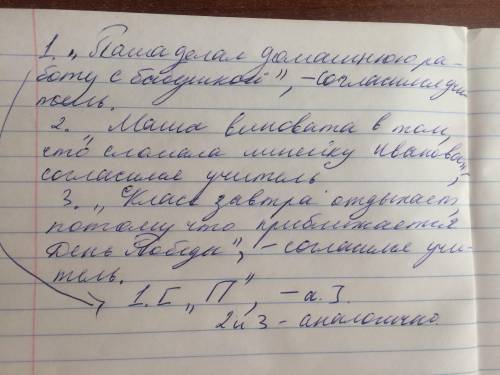 1. „Паша делал домашнюю ра-
боту с бабушкой", – согласился учи-
тель.
2. „Маша виновата в том,
что сломала линейку Иванова",
согласился учитель
3. „Класс завтра отдыхает,
потому что приближается
День Победы", – согласился учи-
тель.
1. [ „П", – а. ].
2 и 3 – аналогично.